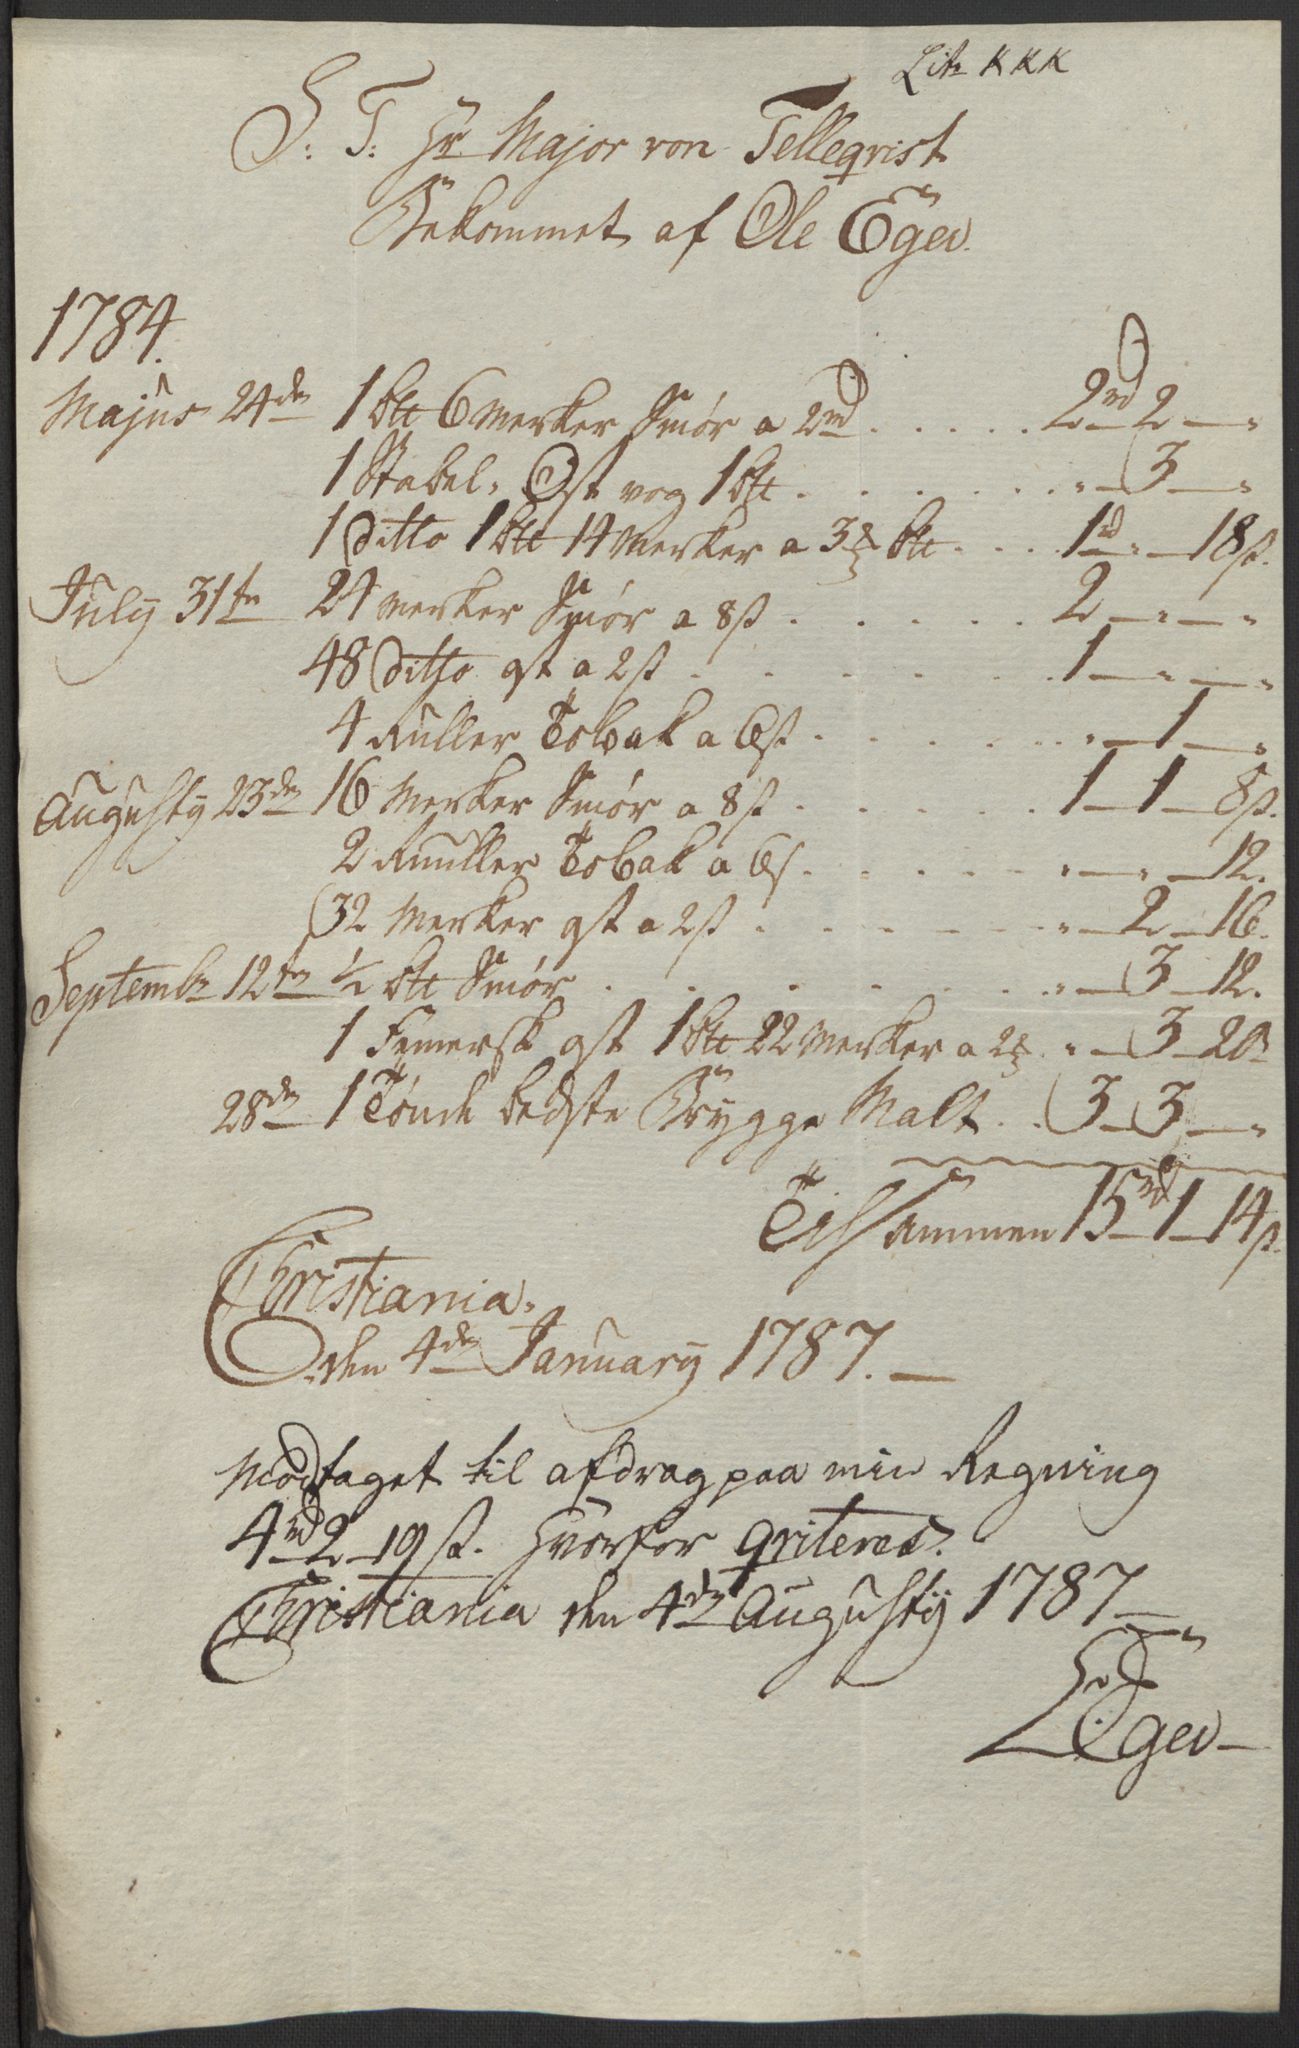 Litr KKK
S: T: Hr Major von Telleqvist
Bekommet af Ole Eger.
1784.
Majus 24de 1 btt 6 Merker Smör a 2rd . . . . . 2rd 2 — "
1 Stabel Ost vog 1 btt . . . . . . " — 3 — "
1 Ditto 1 btt 14 Merker a 3 btt . . . 1rd " — 18 s.
July 31te 24 Merker Smör a 8 s . . . . . 2 — " — "
48 Ditto Ost a 2 s . . . . . 1 — " — "
4 Ruller Tobak a 6 s . . . . . " — 1 — "
Augusty 23de 16 Merker Smör a 8 s . . . . . 1 — 1 — 8 s.
2 Ruuller Tobak a 6 s . . . . . " — " — 12.
32 Merker Ost a 2 s . . . . . " — 2 — 16.
Septembr 12te ½ btt Smör . . . . . " — 3 — 12.
1 Ost 1 btt 22 Merker a 2 . " — 3 — 20
28de 1 Tönde bedste Brygge Malt . . 3 — 3 — "
Tilsammen 15rd 1 — 14 s.
Christiania,
den 4de January 1787. —
Modtaget til afdrag paa min Regning
4rd 2 — 19 s. hvorfor qviteres.
Christiania den 4de Augusty 1787 —
Eger —